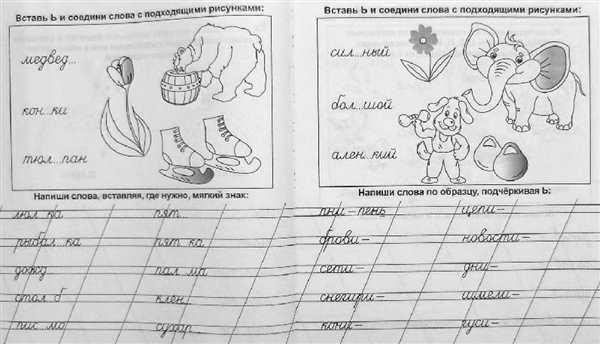 Вставь Ь и соедини слова с подходящими рисунками:
медвед...
кон...ки
тюл...пан
Напиши слова, вставляя, где нужно, мягкий знак:
люл ка пят
рыбал ка пят ка
дожд пал ма
стол б клен
пис мо сухар
Вставь Ь и соедини слова с подходящими рисунками:
сил...ный
бол...шой
ален...кий
Напиши слова по образцу, подчёркивая Ь:
пни – пень цепи –
брови – новости –
сети – дни –
снегири – шмели –
кони – гуси –